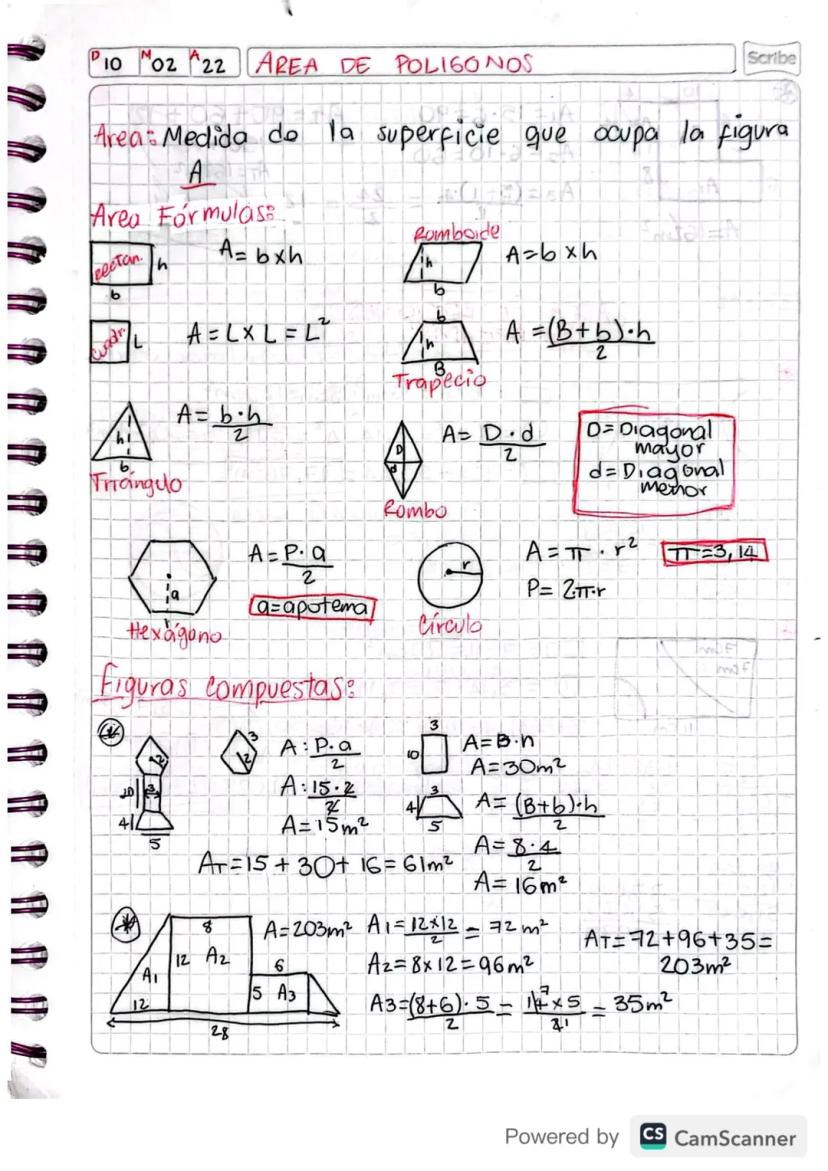 D 10 M 02 A 22 AREA DE POLIGONOS Scribe
Area: Medida de la superficie que ocupa la figura
A
Area Fórmulas:
Rectan. h b A= b x h
Romboide h b A=b x h
Cuadr. L A = L X L = L²
b h B Trapecio A = (B+b)·h / 2
h b Triángulo A= b·h / 2
D d Rombo A= D·d / 2
D= Diagonal
mayor
d= Diagonal
menor
a Hexágono A= P·a / 2
a=apotema
r Círculo A= π · r² π=3,14
P= 2π·r
Figuras compuestas:
2 10 3 4 5
3 2 A : P·a / 2
A : 15·2 / 2
A= 15m²
3 10 A=B·h
A= 30m²
3 4 5 A= (B+b)·h / 2
A= 8·4 / 2
A= 16m²
AT=15 + 30+ 16= 61m²
8 12 A2 A1 12 6 5 A3 28
A=203m² A1= 12x12 / 2 = 72 m²
A2= 8x 12= 96m²
A3=(8+6)·5 / 2 = 14 7 x5 / 2 1 = 35m²
AT=72+96+35=
203m²
Powered by CS CamScanner